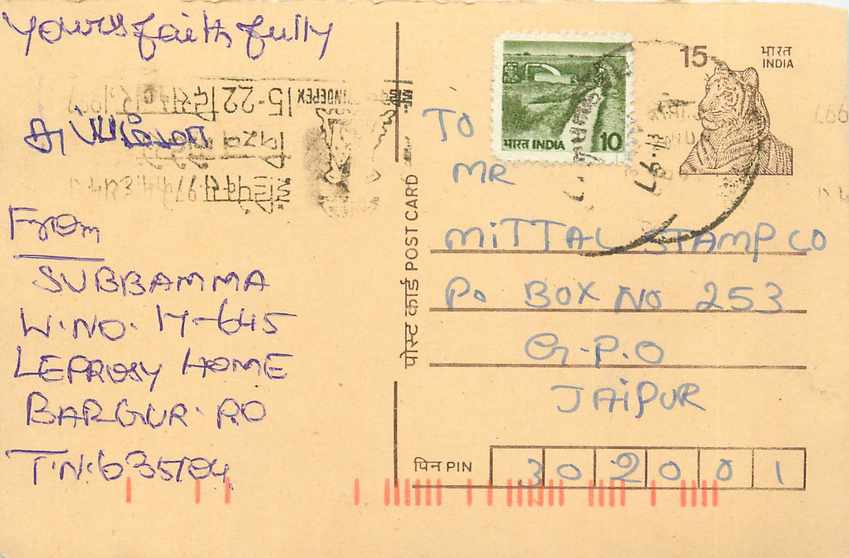 Yours faithfully
From
SUBBAMMA
W.NO. 17-645
LEPROSY HOME
BARGUR. P.O
T.N. 635104
INDEPEX
15-22 दिस
पोस्ट कार्ड POST CARD
15
भारत
INDIA
भारत INDIA 10
TO
MR
MITTAL STAMP CO
Po BOX NO 253
G.P.O
JAIPUR
पिन PIN
302001